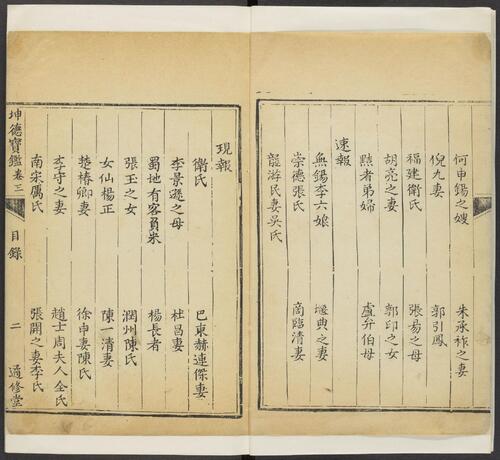 何申錫之嫂 朱承祚之妻
倪九妻 郭引鳳
福建衛氏 張易之母
胡亮之妻 郭印之女
黠者弟婦 盧弁伯母
速報
無錫李六娘 堰典之妻
崇德張氏 商臨清妻
龍游民妻吳氏
現報
衛氏 巴東赫連傑妻
李景遜之母 杜昌妻
蜀地有客負米 楊長者
張玉之女 潤州陳氏
女仙楊正 陳一清妻
楚椿卿妻 徐申妻陳氏
李守之妻 趙士周夫人仝氏
南宋厲氏 張開之妻李氏
坤德寶鑑 卷三 目錄 二 適修堂